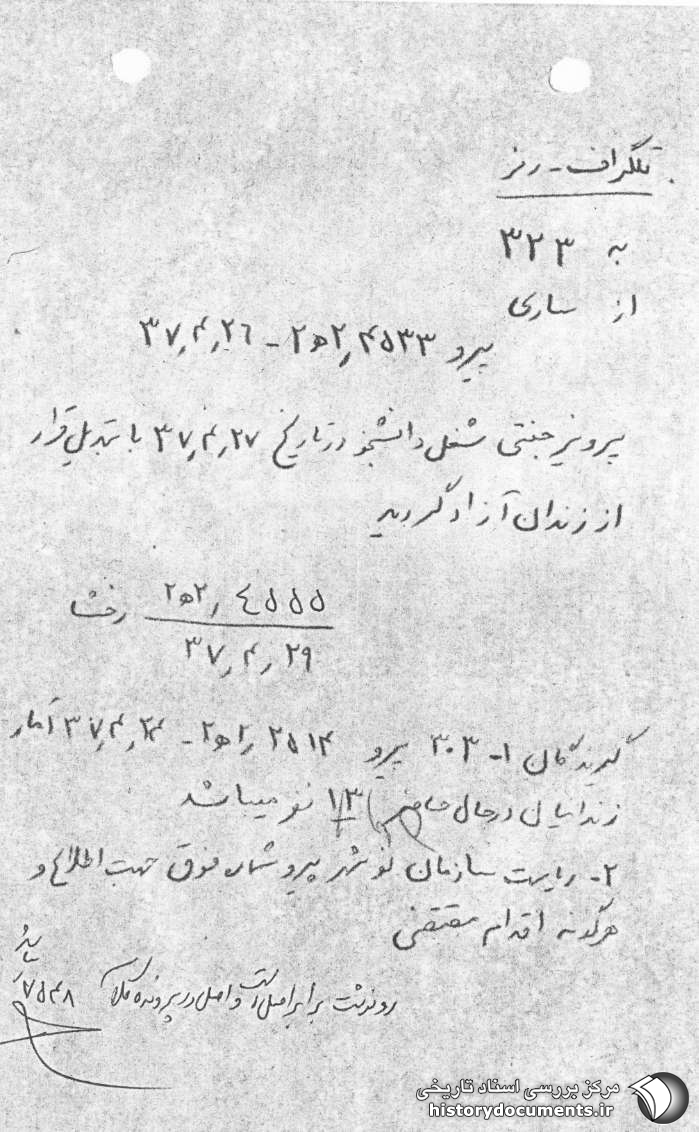 تلگراف - رمز
به ۳۲۳
از ساری
پیرو ۴۵۳۳/ ۲ه‍۲ - ۳۷/۴/۲۶
پرویز جنتی شغل دانشجو در تاریخ ۳۷/۴/۲۷ با تبدیل قرار
از زندان آزاد گردید
۴۵۵۵/ ۲ه‍۲ رخشا
۳۷/۴/۲۹
گیرندگان ۱- ۳۰۳ پیرو ۲۵۱۴/ ۲ه‍۲ - ۳۷/۴/۲۴ آمار
زندانیان در حال حاضر ۱۳ نفر میباشد
۲- ریاست سازمان نوشهر پیرو شماره فوق جهت اطلاع و
هرگونه اقدام مقتضی
رونوشت برابر اصل است و اصل در پرونده کلاسه ۷۵۴۸
مرکز بررسی اسناد تاریخی
historydocuments.ir